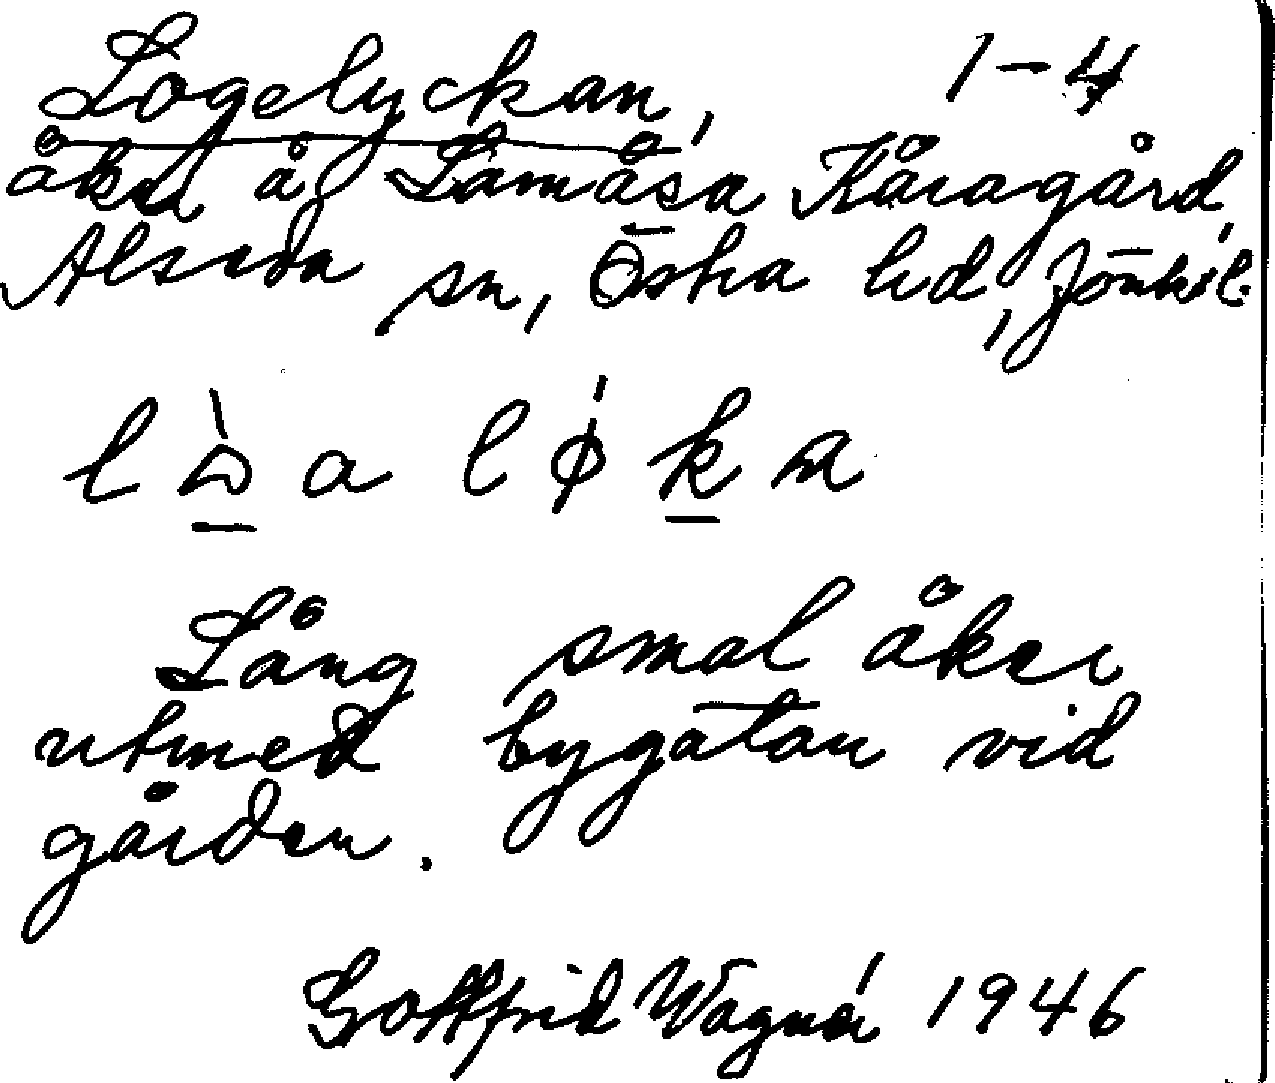 Logelyckan, 1-4
åker å Lamåsa Kåragård,
Alseda sn, Östra hd, Jönk. l.
l a l ø k a
Lång smal åker
utmed bygatan vid
gården.
Gottfrid Wagnér 1946